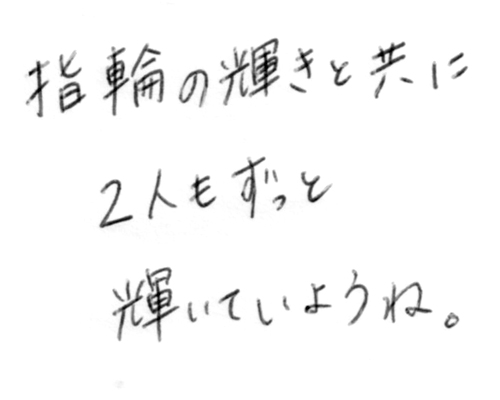 指輪の輝きと共に
2人もずっと
輝いていようね。